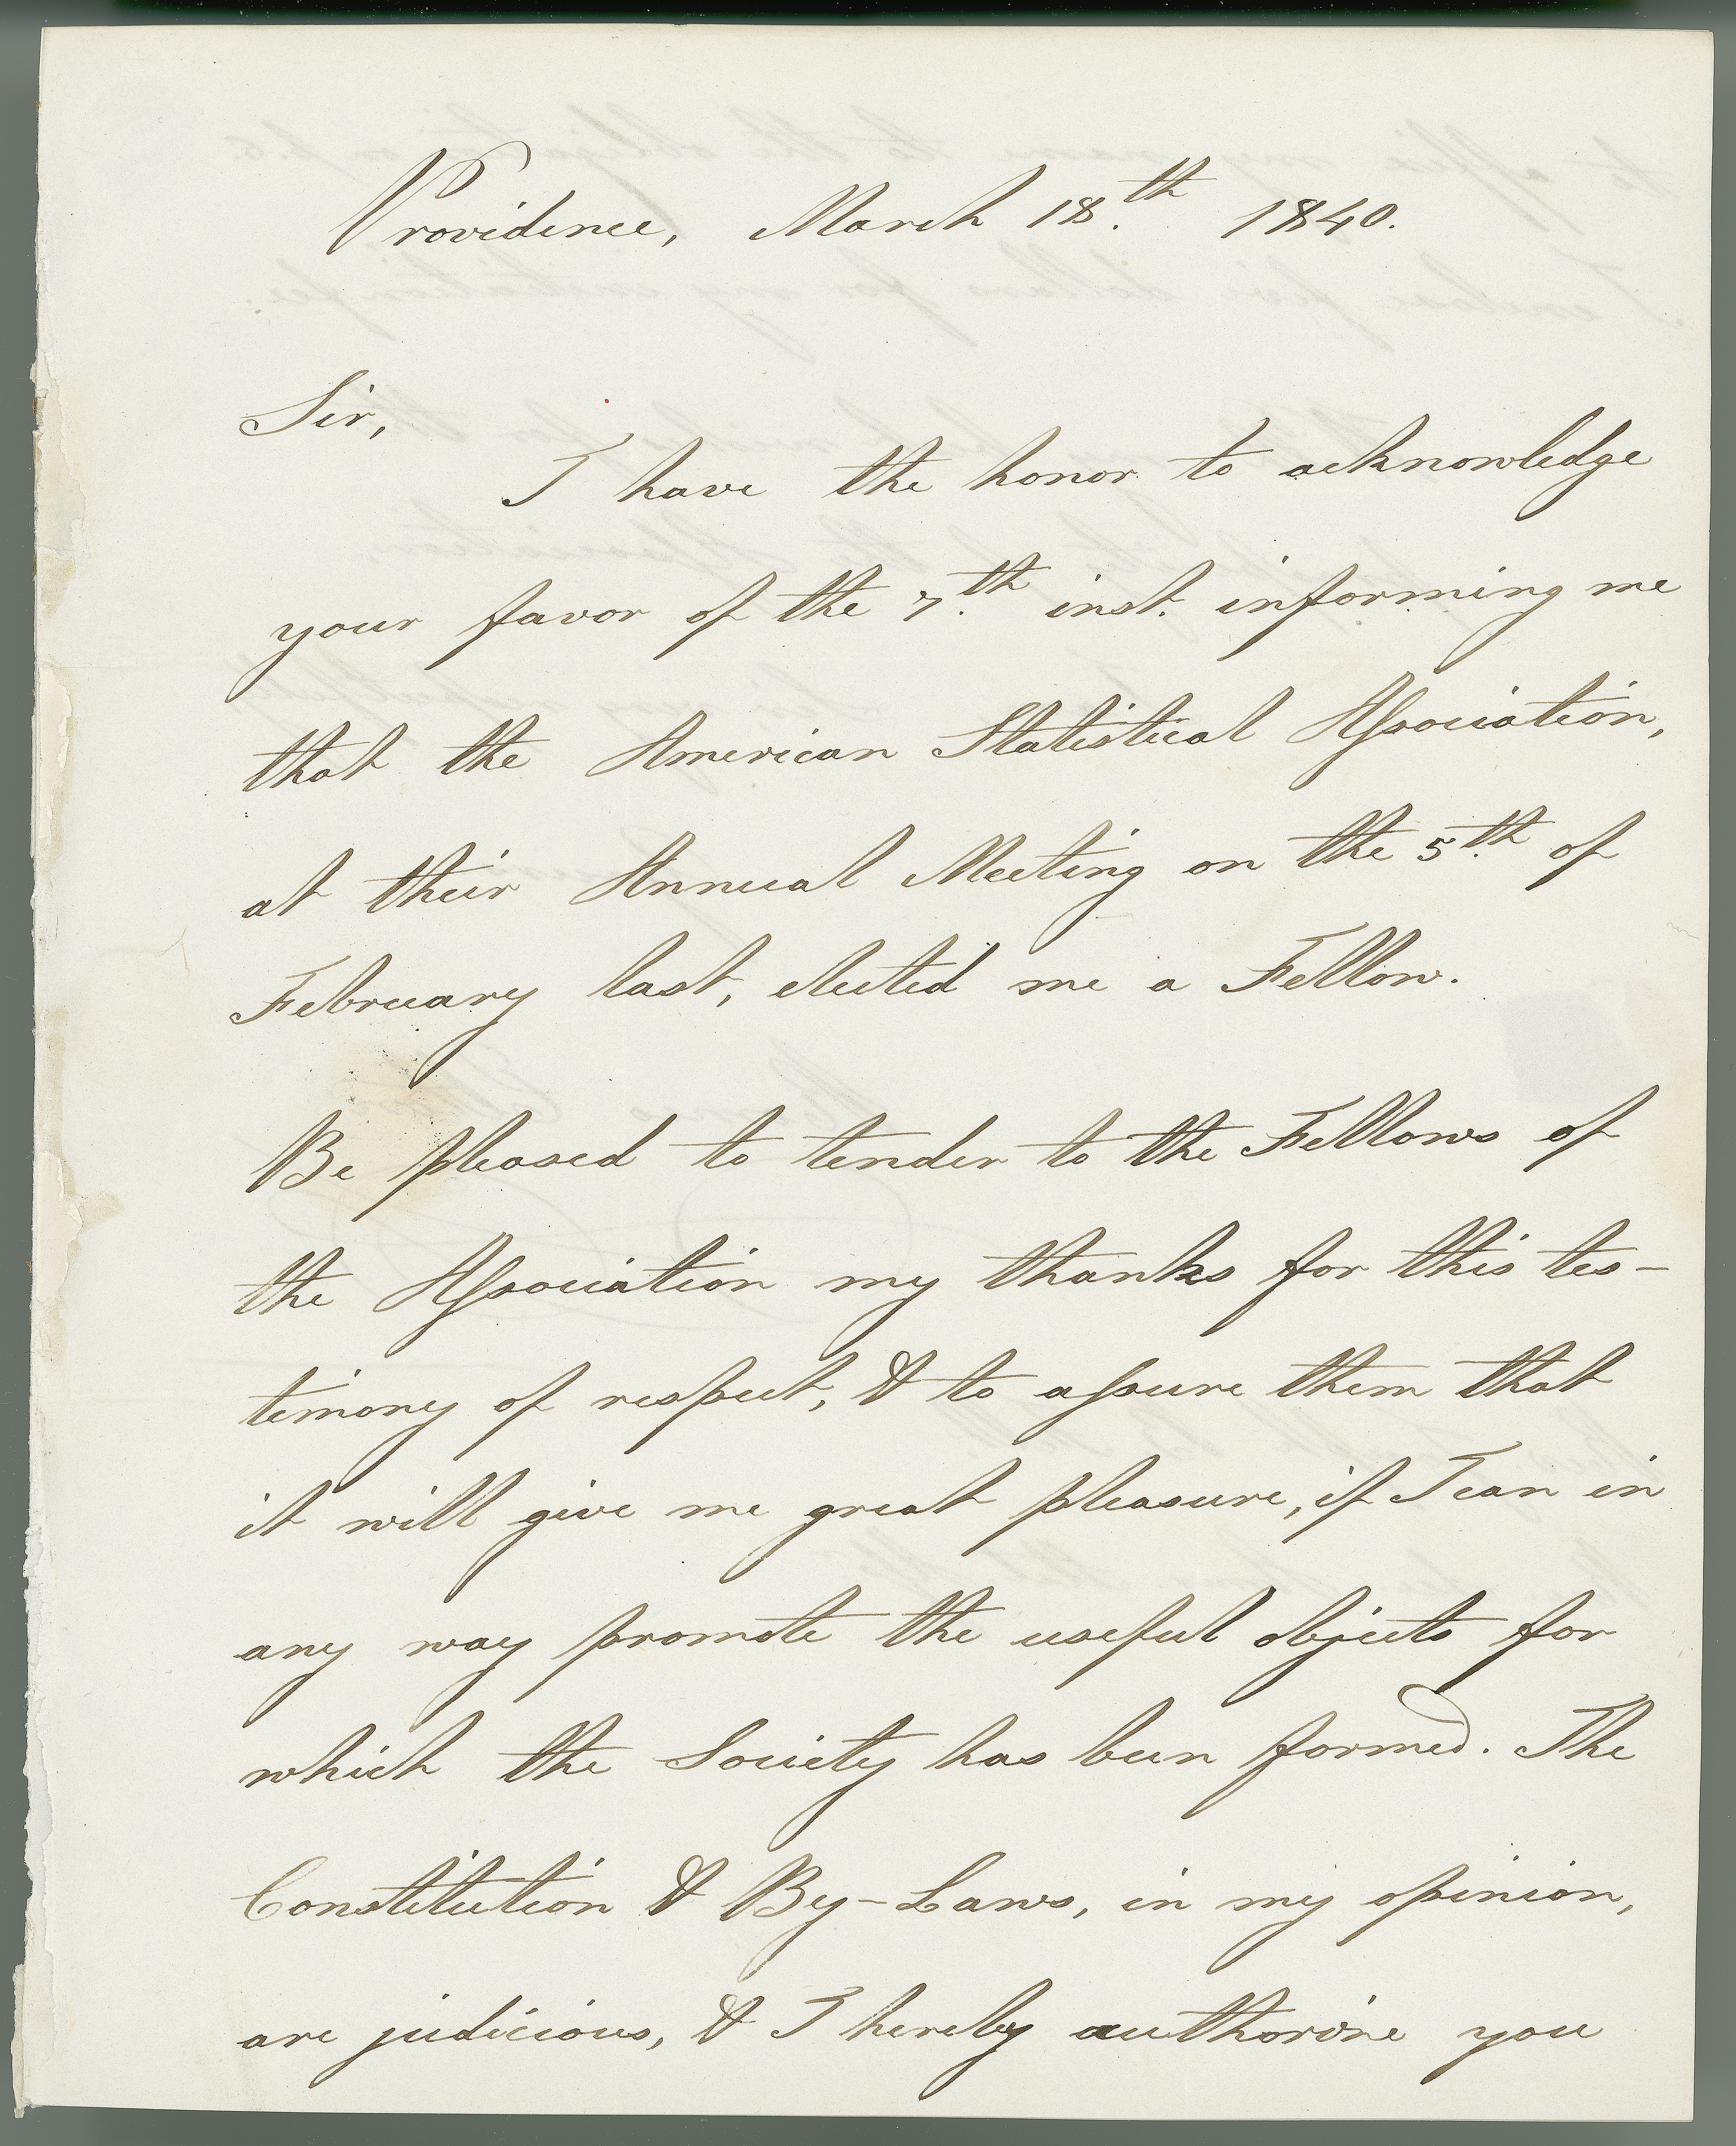 Providence, March 18.th 1840.
Sir,
I have the honor to acknowledge
your favor of the 7.th inst. informing me
that the American Statistical Association,
at their Annual Meeting on the 5.th of
February last, elected me a Fellow.
Be pleased to tender to the Fellows of
the Association my thanks for this tes-
timony of respect, & to assure them that
it will give me great pleasure, if I can in
any way promote the useful objects for
which the Society has been formed. The
Constitution & By-Laws, in my opinion,
are judicious, & I hereby authorize you